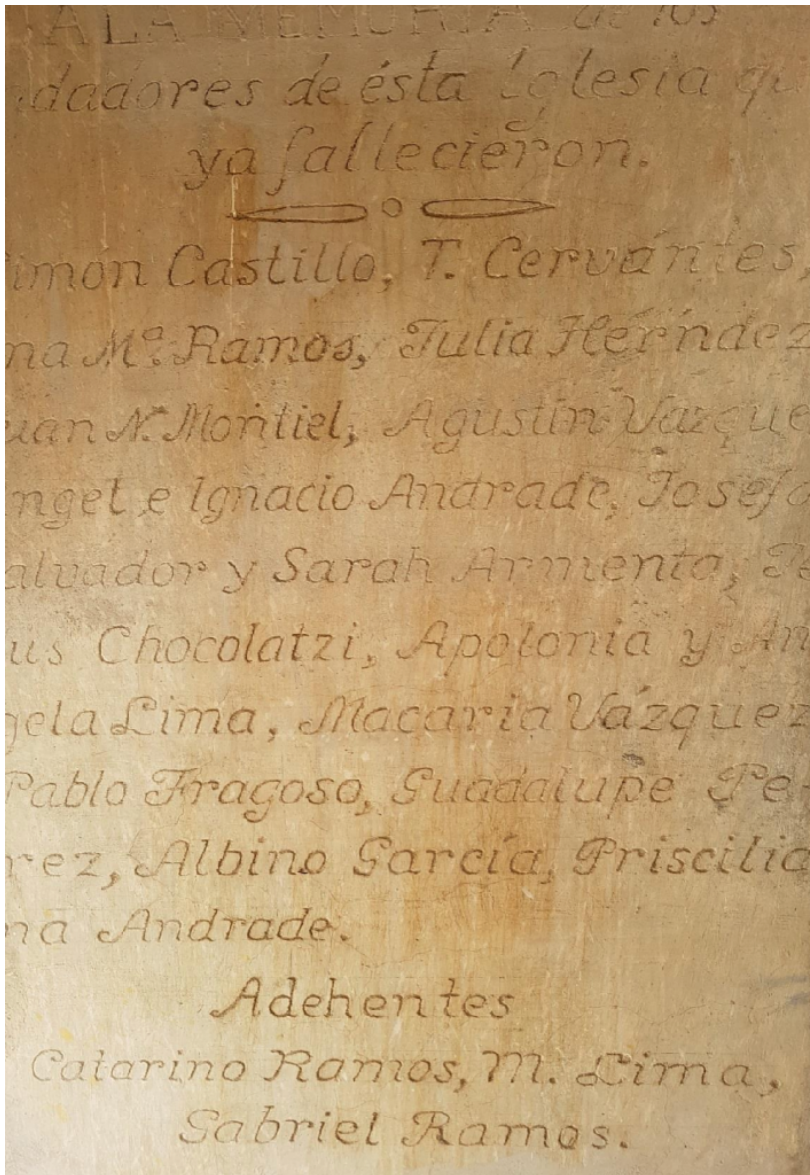 A LA MEMORIA de los
dadores de ésta Iglesia qu
ya fallecieron.
imón Castillo, T. Cervántes,
na Mª. Ramos, Julia Hérndez
uan N. Montiel, Agustín Vazque
ngel e Ignacio Andrade, Josefa
alvador y Sarah Armenta, Te
us Chocolatzi, Apolonia y An
gela Lima, Macaria Vázquez
Pablo Fragoso, Guadalupe Pe-
rez, Albino García, Priscilia
na Andrade.
Adehentes
Catarino Ramos, M. Lima,
Gabriel Ramos.